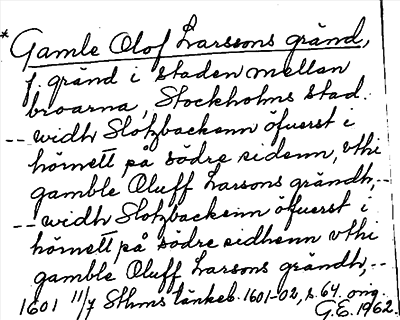 * Gamle Olof Larssons gränd,
f. gränd i staden mellan
broarna, Stockholms stad.
-- widh Slotzbackenn öfuerst i
hörnett på södre sidenn, vthi
gamble Oluff Larsons grändh,--
-- widh Slotzbackenn öfuerst i
hörnett på södre sidhenn vthi
gamble Oluff Larsons grändh,--
1601 11/7 Sthms tänkeb. 1601-02, s. 64. orig.
G.E. 1962.